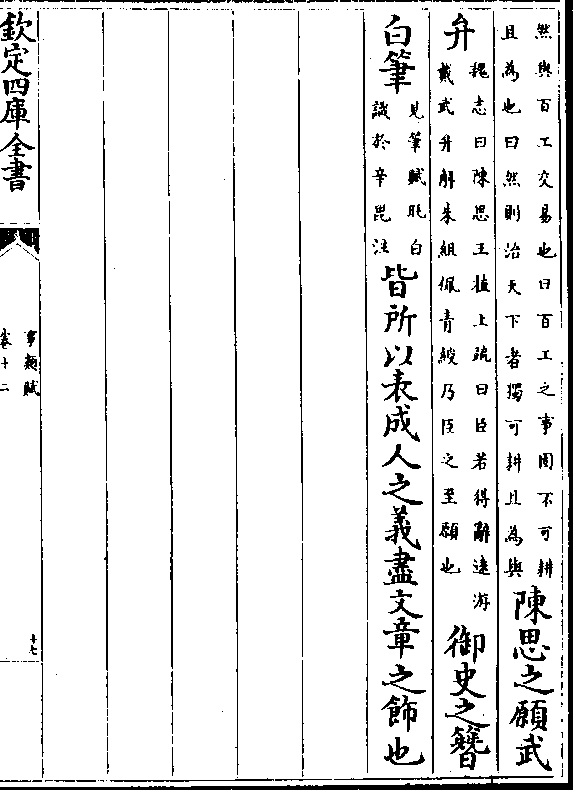 然與百工交易也曰百工之事固不可耕
且為也曰然則治天下者獨可耕且為與
陳思之願武
弁
魏志曰陳思王植上疏曰臣若得辭遠游
戴武弁解朱組佩青紱乃臣之至願也
御史之簪
白筆
見筆賦眊白
識於辛毘注
皆所以表成人之義盡文章之飾也
欽定四庫全書
事類賦
卷十二
十七